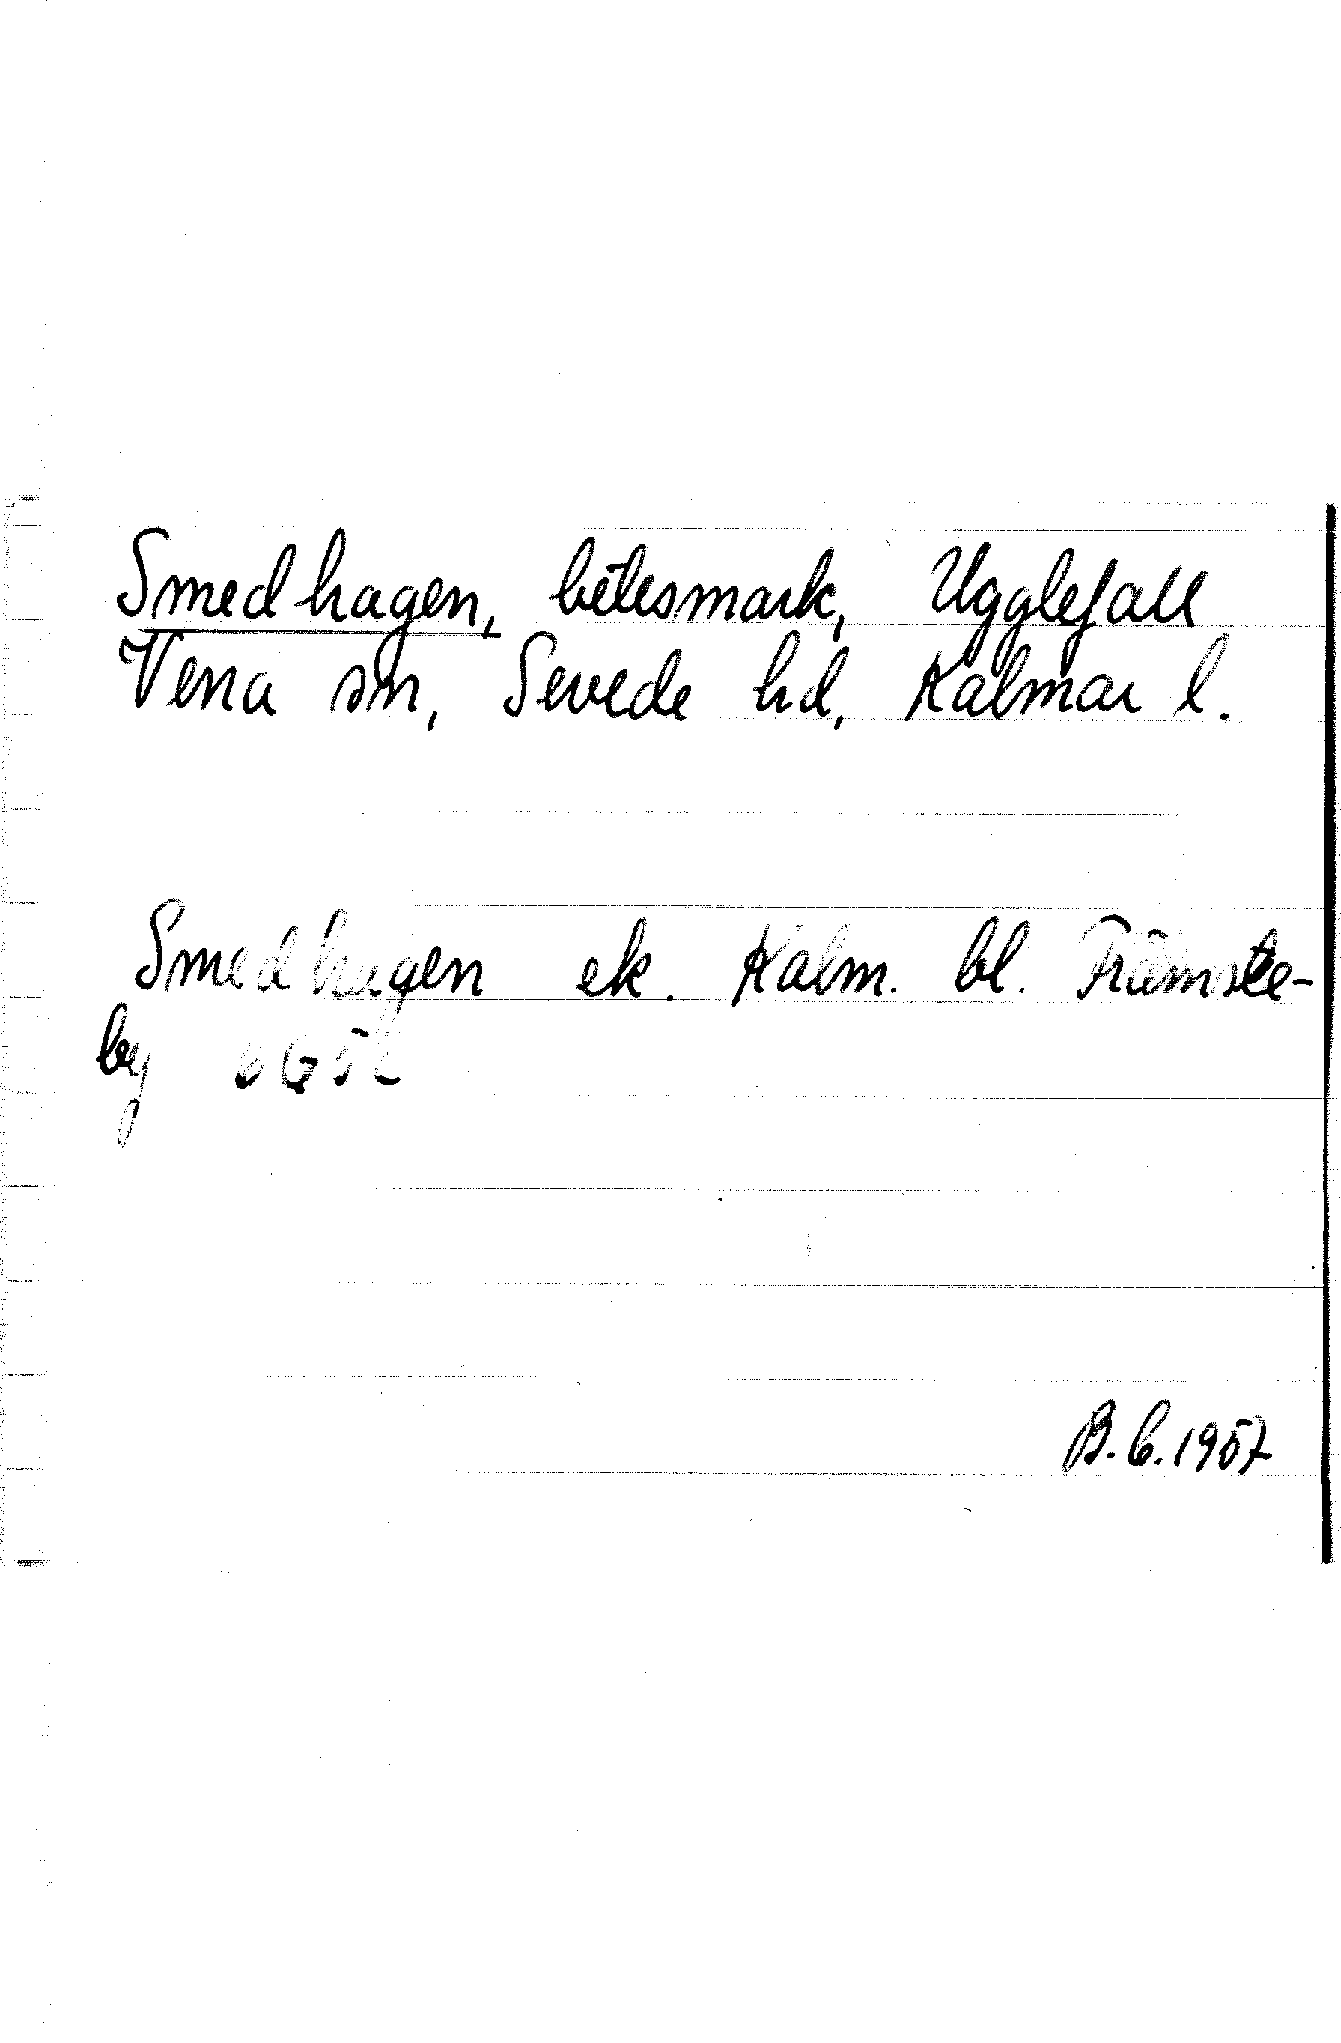 Smedhagen, betesmark, Ugglefall
Vena sn, Sevede hd, Kalmar l.
Smedhagen ek. Kalm. bl. Främste-
by 6G5c
B.C.1957